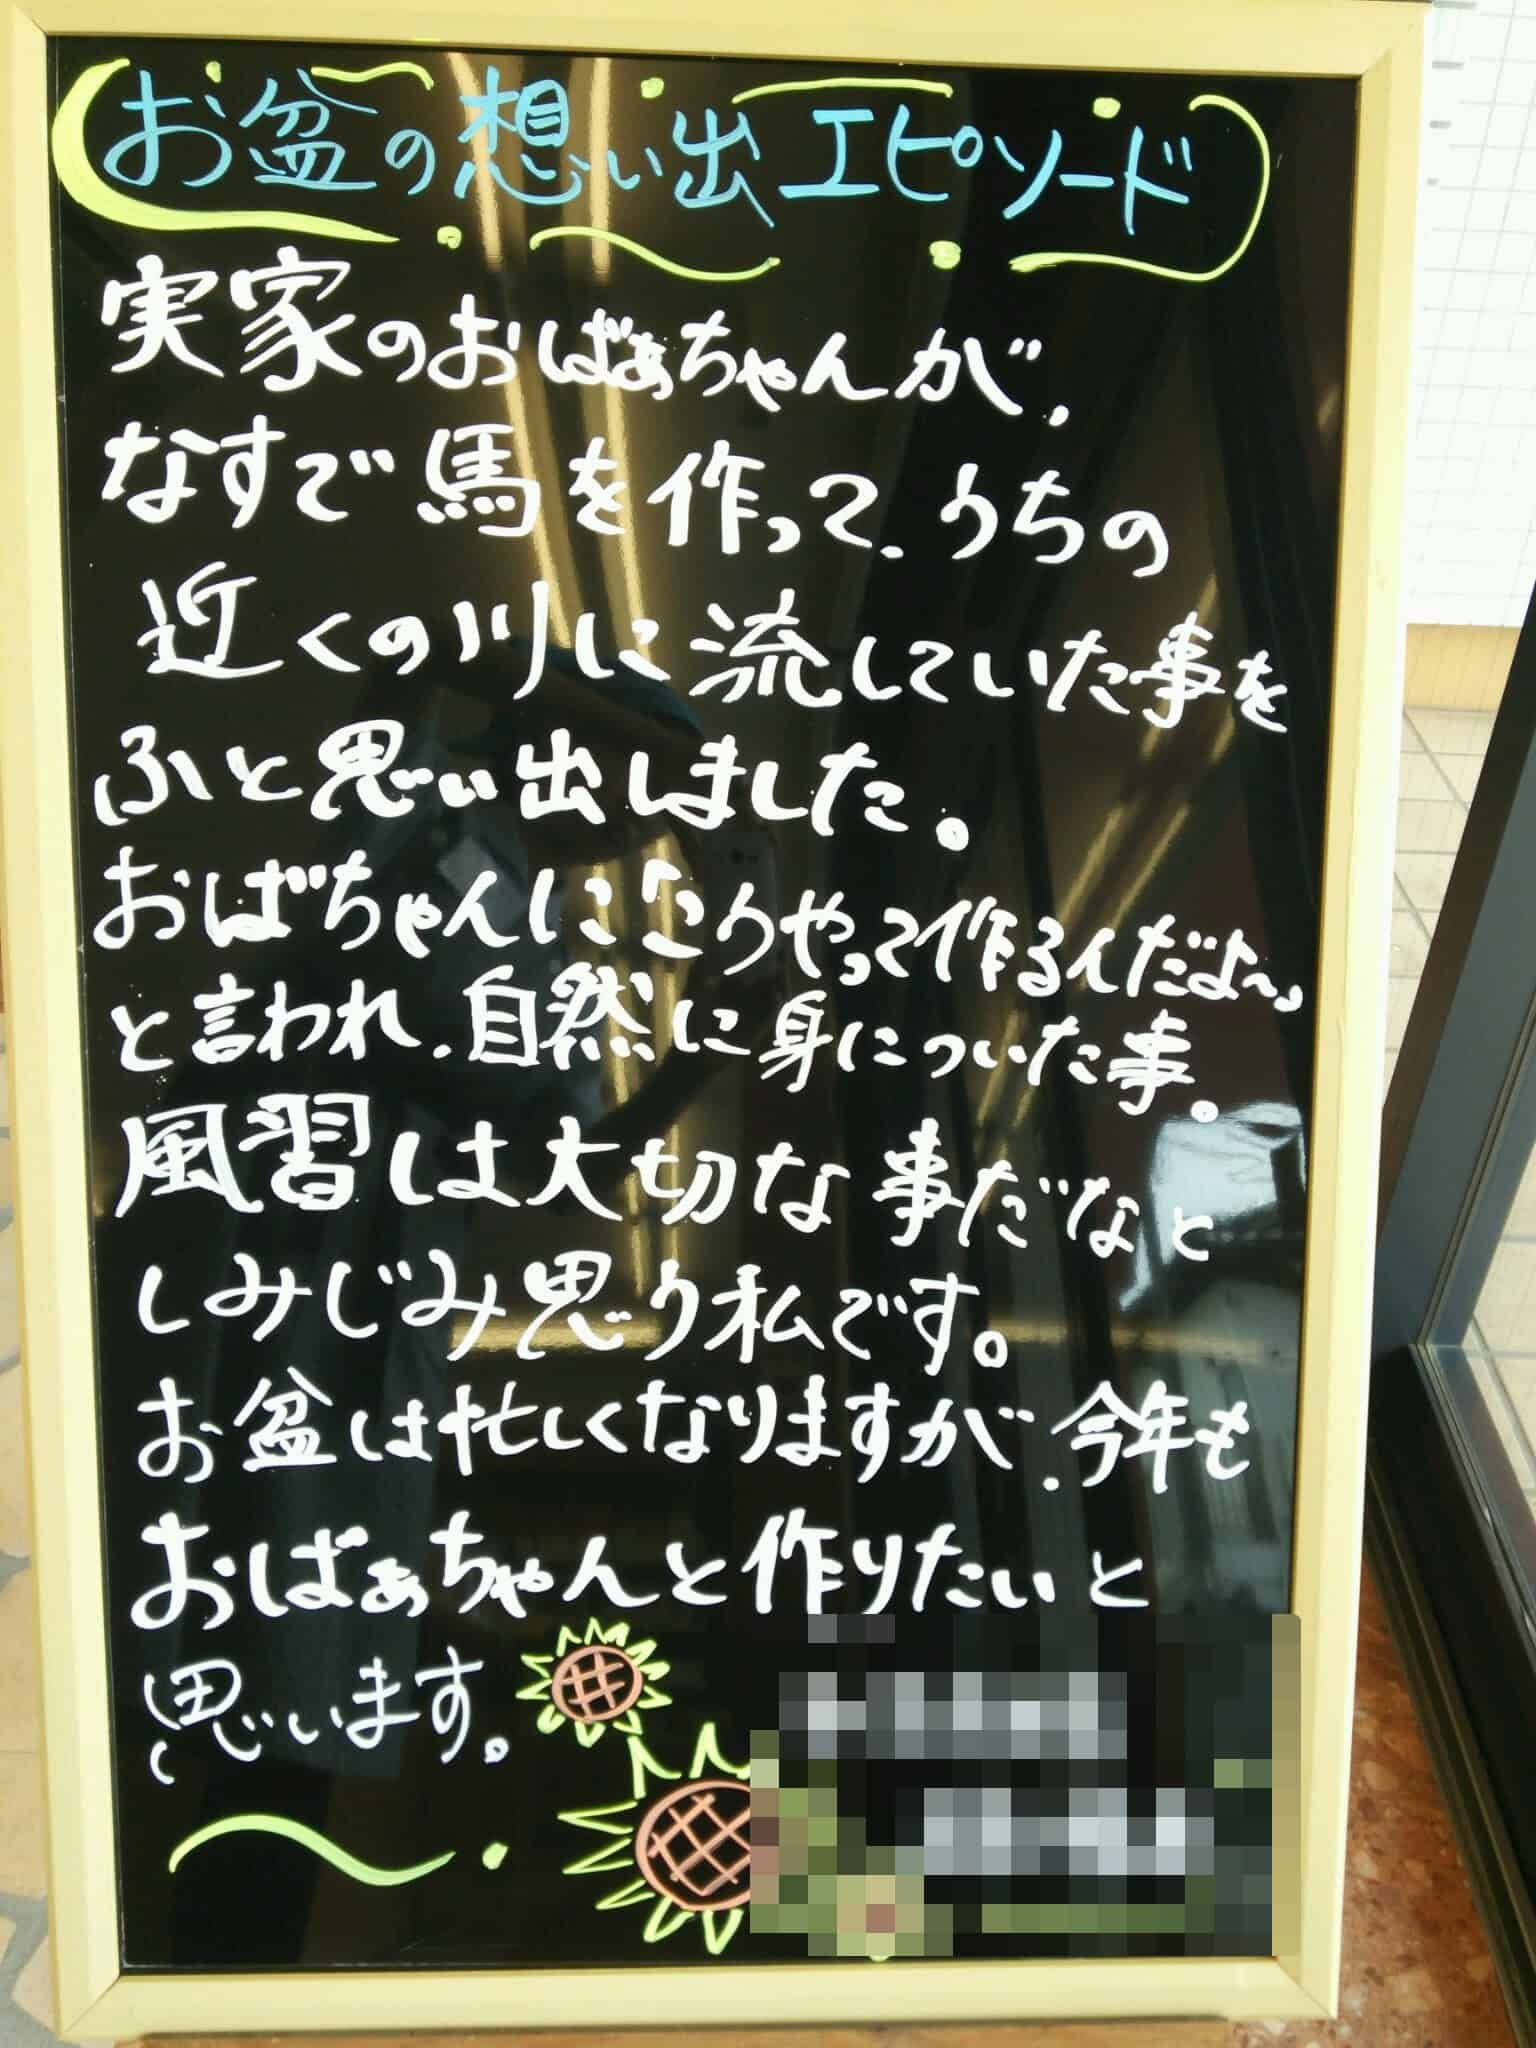 お盆の想い出エピソード
実家のおばぁちゃんが、
なすで馬を作って、うちの
近くの川に流していた事を
ふと思い出しました。
おばちゃんに「こうやって作るんだよ〜」
と言われ、自然に身についた事。
風習は大切な事だなと
しみじみ思う私です。
お盆は忙しくなりますが、今年も
おばぁちゃんと作りたいと
思います。